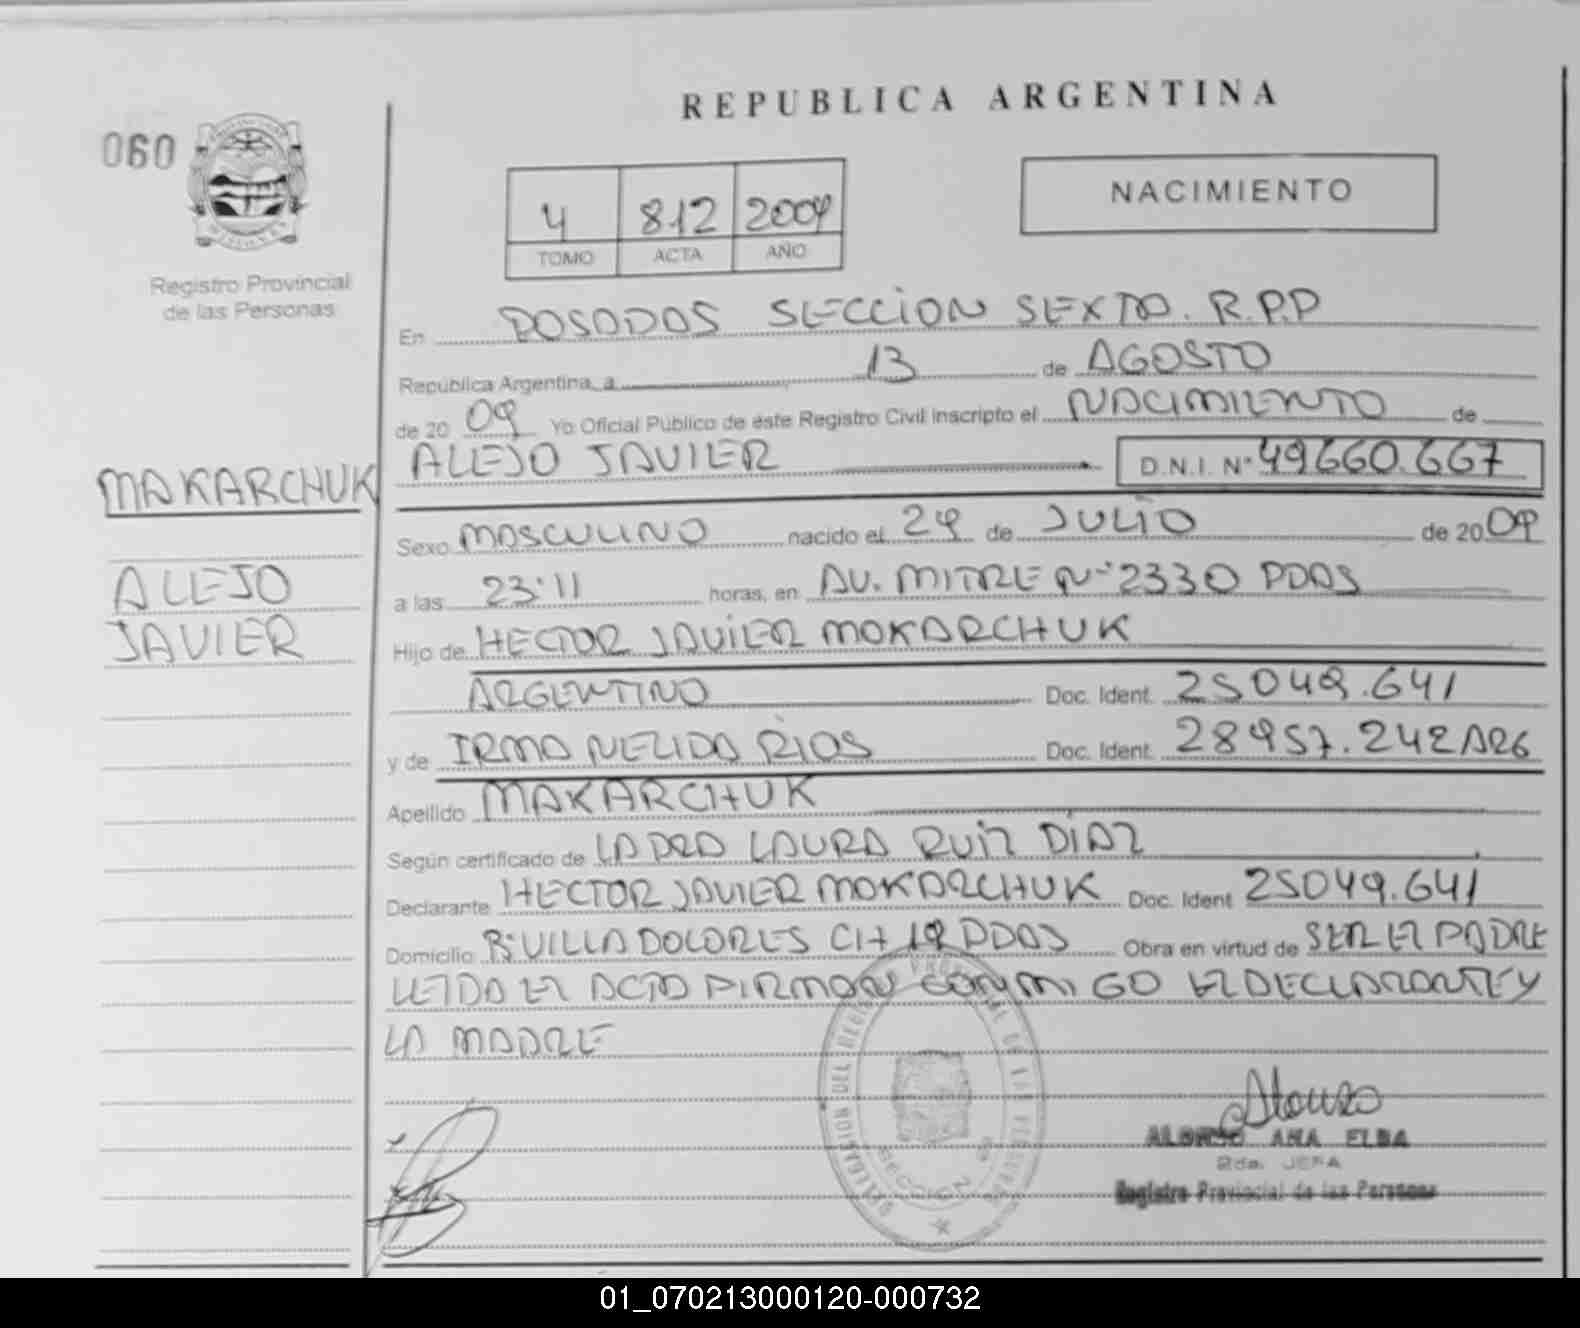 REPUBLICA ARGENTINA
060
NACIMIENTO
4 812 2009
TOMO ACTA AÑO
Registro Provincial
de las Personas
En POSADAS SECCION SEXTA. R.P.P
República Argentina, a 13 de AGOSTO
de 20 09 Yo Oficial Público de éste Registro Civil inscripto el NACIMIENTO de
ALEJO JAVIER D.N.I. Nº 49660.667
MAKARCHUK
Sexo MASCULINO nacido el 29 de JULIO de 20 09
ALEJO
a las 23:11 horas, en AV. MITRE Nº 2330 PDAS
JAVIER
Hijo de HECTOR JAVIER MAKARCHUK
ARGENTINO Doc. Ident. 25049.641
y de IRMA NELIDA RIOS Doc. Ident. 28957.242 ARG
Apellido MAKARCHUK
Según certificado de LA DRA LAURA RUIZ DIAZ
Declarante HECTOR JAVIER MAKARCHUK Doc. Ident 25049.641
Domicilio Bº VILLA DOLORES CH 19 PDAS Obra en virtud de SER EL PADRE
LEIDA EL ACTA FIRMAN CONMIGO EL DECLARANTE Y
LA MADRE
DELEGACION DEL REGISTRO PROVINCIAL DE LAS PERSONAS
SECCION 6
Alonso
ALONSO ANA ELBA
2da. JEFA
Registro Provincial de las Personas
01_070213000120-000732